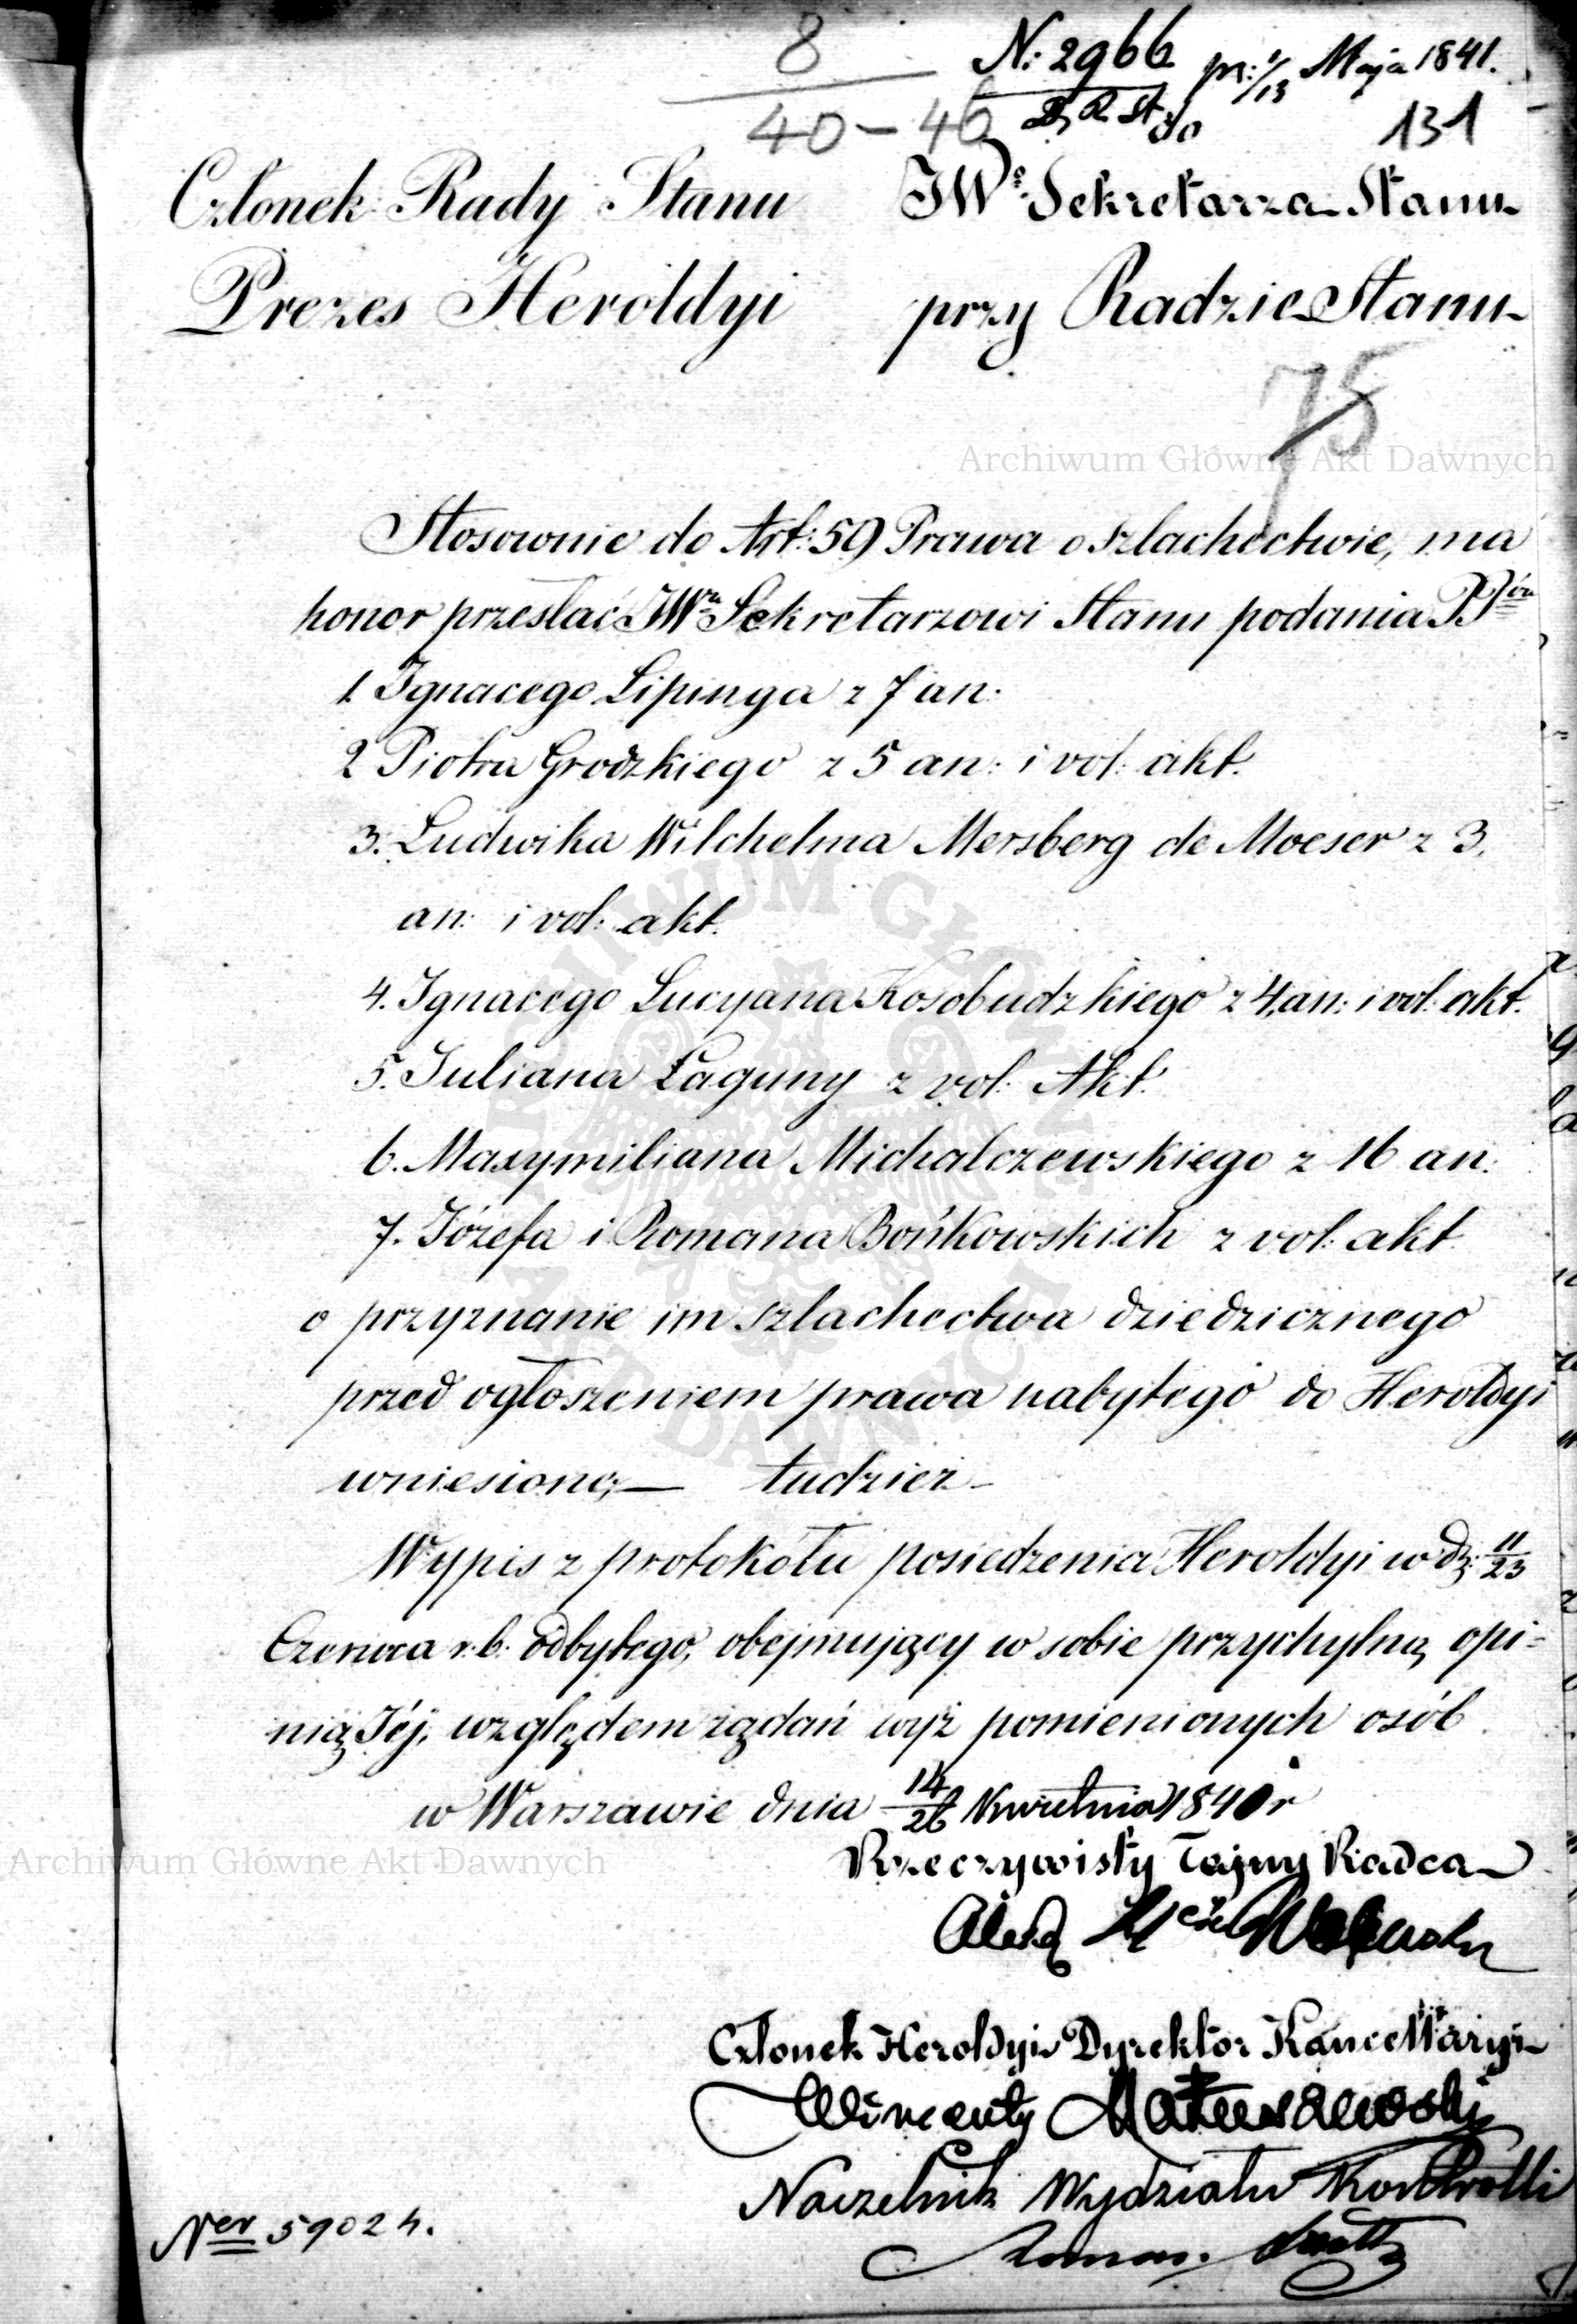 8
40-46
N: 2966
pr: 1/13 Maja 1841.
131
Członek Rady Stanu
Prezes Heroldyi
JWº Sekretarza Stanu
przy Radzie Stanu
75
Archiwum Główne Akt Dawnych
Stosownie do Art: 59 Prawa o szlachectwie, ma
honor przesłać JWu Sekretarzowi Stanu podania PPów
1. Ignacego Lipinga z 7 an:
2 Piotra Grodzkiego z 5 an: i vol: akt.
3. Ludwika Wilchelma Mersberg de Moeser z 3.
an: i vol: akt.
4. Ignacego Lucyana Kosobudzkiego z 4 an: i vol: akt.
5. Juliana Łaguny z vol: Akt.
6. Maxymiliana Michalczewskiego z 16 an:
7. Józefa i Romana Bońkowskich z vol: akt.
o przyznanie im szlachectwa dziedzicznego
przed ogłoszeniem prawa nabytego do Heroldyi
wniesione; — tudzież -
Wypis z protokółu posiedzenia Heroldyi w dz: 11/23
Czerwca r. b. odbytego, obejmujący w sobie przychylną opi=
nią Jéj, względem żądań wyż pomienionych osób
w Warszawie dnia 14/26 Kwietnia 1840 r
Archiwum Główne Akt Dawnych
Rzeczywisty Tajny Radca
Alexa Walewski
Członek Heroldyi Dyrektor Kancellaryi
Wincenty Matuszewski
Naczelnik Wydziału Kontrolli
Roman
Ner 59024.
ARCHIWUM GŁÓWNE AKT DAWNYCH